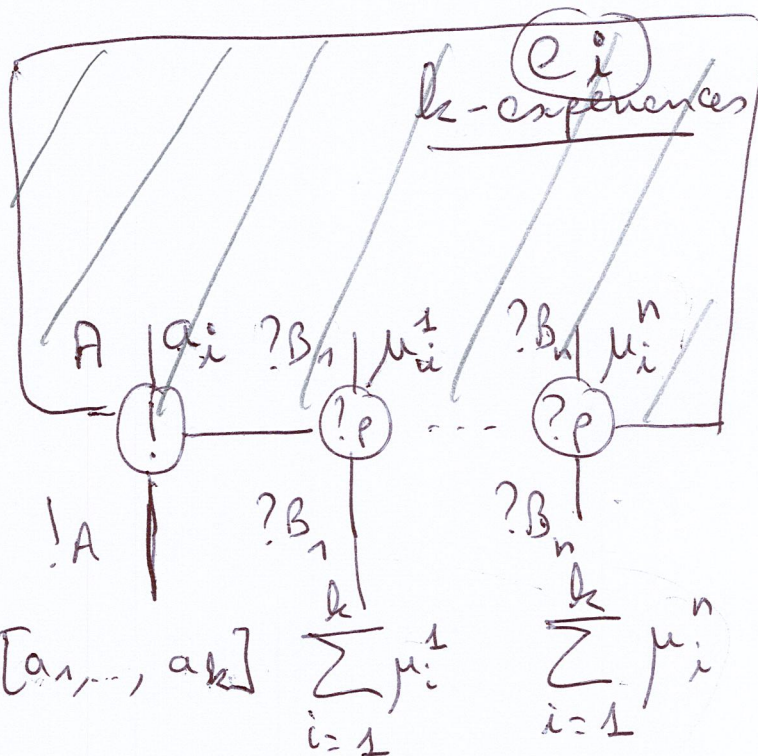 e i
k-expériences
A a_i ?B_1 μ_i^1 ?B_n μ_i^n
! ?p ---- ?p
!A ?B_1 ?B_n
[a_1,.., a_k] \sum_{i=1}^{k} μ_i^1 \sum_{i=1}^{k} μ_i^n